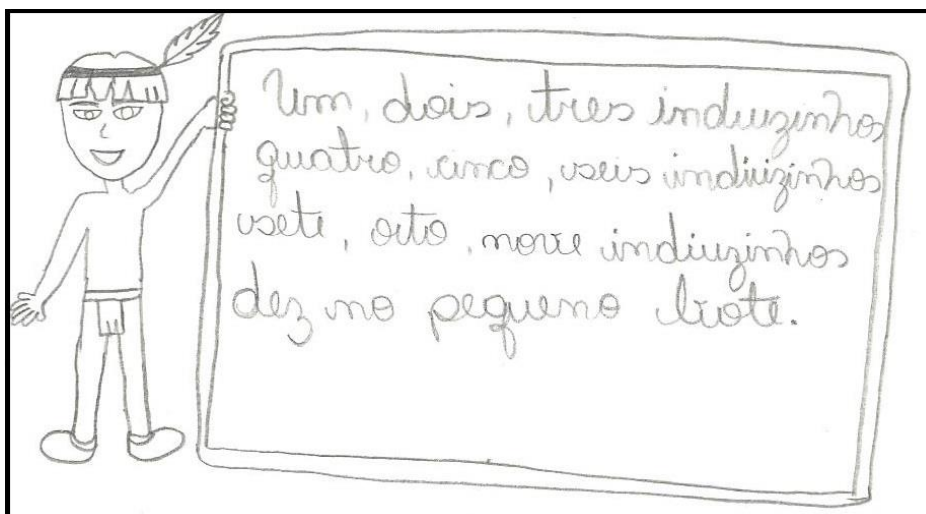 Um, dois, tres indiuzinhos
quatro, cinco, seis indiuizinhos
sete, oito, nove indiuzinhos
dez no pequeno bote.